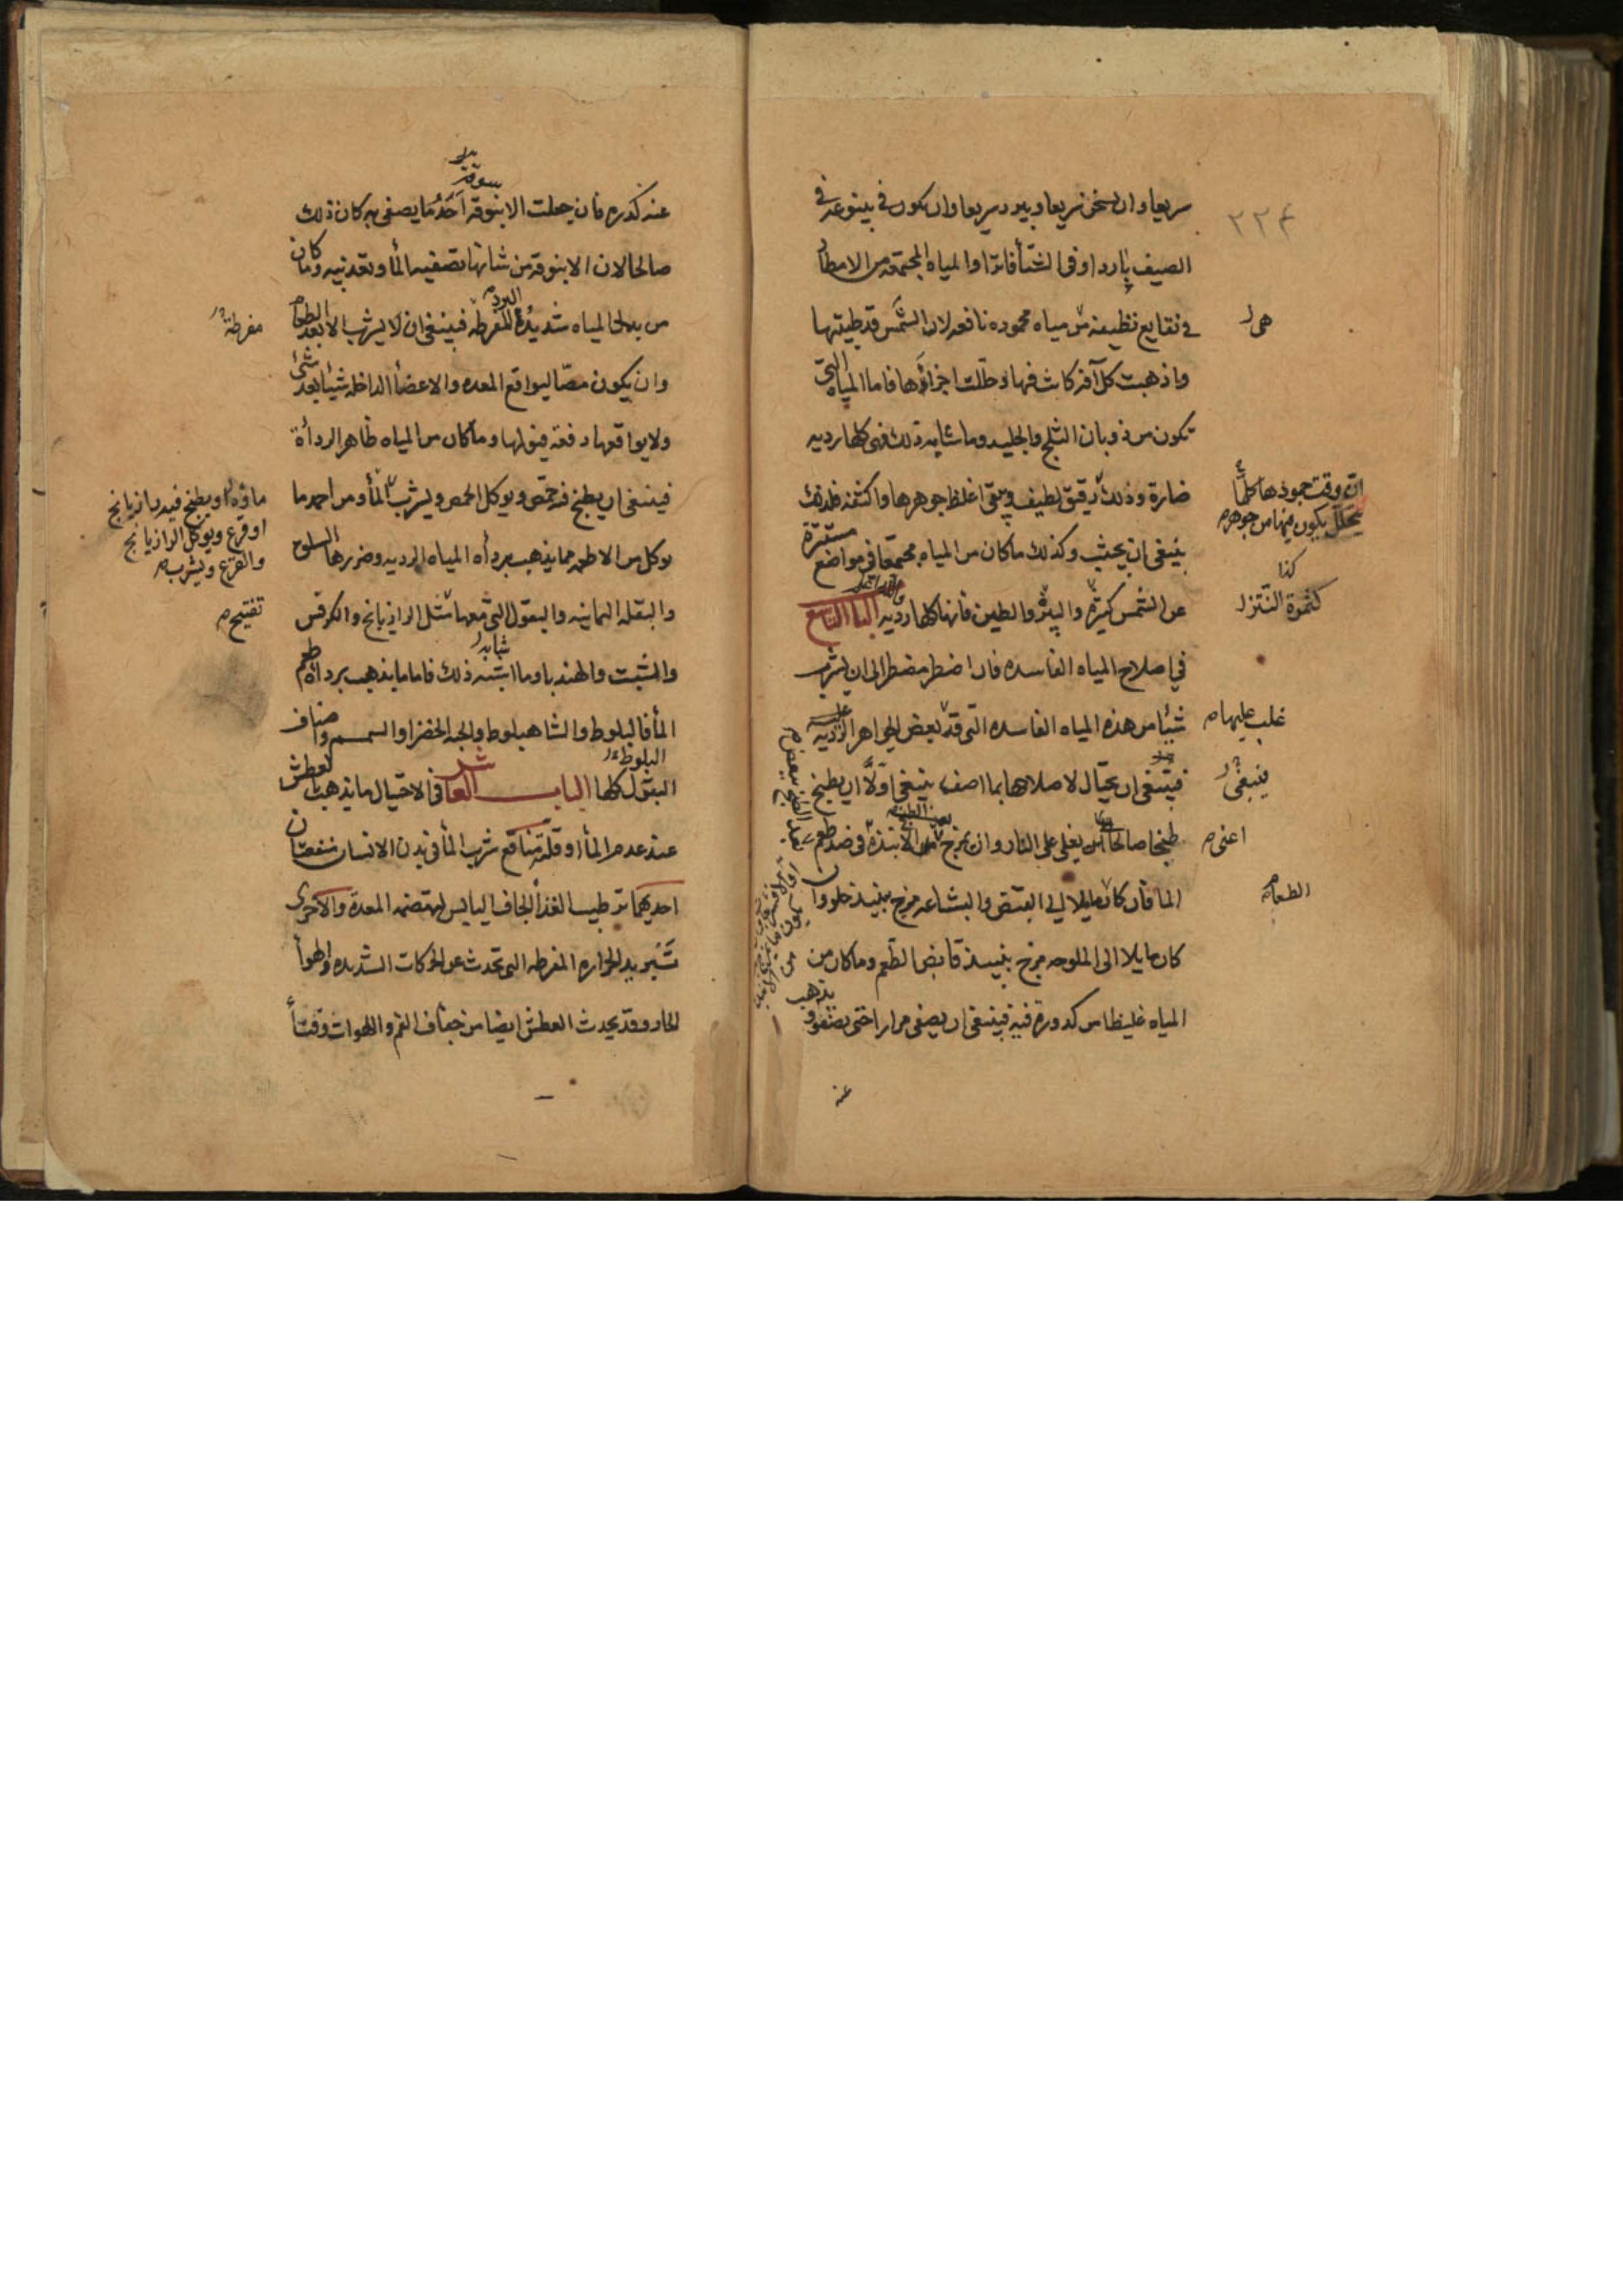 ٢٢٤
سريعا وان يسخن سريعا ويبرد سريعا وان يكون في ينبوعه في
الصيف باردا وفى الشتأ فاترا والمياه المجتمعه من الامطار
في نقايع نظيفه مياه محموده نافعه لان الشمس قد طيبتها
واذهبت كل آفه كانت فيها وحللت اجزاؤها فاما المياه التي
تكون من ذوبان الثلج والجليد وما شابه ذلك فهى كلها رديه
ضارة وذلك رقيق لطيف ويبقى اغلظ جوهرها واكثفه فلذلك
ينبغى ان يجتنب وكذلك ما كان من المياه مجتمعا في مواضع مستترة
عن الشمس كثيرة والطين فانها كلها رديه البا التاسع
في اصلاح المياه الفاسده فان اضطر مضطر الى ان يشرب
شيئا من هذه المياه الفاسده التى قد بعض الجواهر الرديه
فينبغى ان يحتال لاصلاحها بما اصف ينبغى اولا ان يطبخ
طبخا صالحا يغلى على النار وان يمزج الانبذة فى ضد طعم
الما فان كان مايلا الى العفض والبشاعه مزج بنبيذ حلو وان
كان مايلا الى الملوحه مزج بنبيذ قابض الطعم وما كان من
المياه غليظا من كدورة فيه فينبغى ان يصفى مرارا حتى يصفو ويذهب
عنه
هى
غلب عليها
ينبغى
اعنى
الطعام
عنه كدره فان جعلت الابنوقه احد ما يصفى به كان ذلك
صالحا لان الابنوقة من شانها تصفيه المأ وتعذيبه وما كان
من المياه شديدة البرد المفرطه فينبغى ان لا يشرب الا بعد الطعام
وان يكون مصّا ليواقع المعده والاعضأ الداخله شيئا بعد شئ
ولا يواقعها دفعه وما كان من المياه ظاهر الردأة
فينبغى ان يطبخ فه حمّص ويوكل الحمص ويشرب المأ ومن احمد ما
يوكل من الاطعمه مما يذهب بردأه المياه الرديه وضررها السلوق
والبقله اليمانيه والبقول التى معها مثل الرازيانج والكرفس
والشبت والهندبا وما اشبه ذلك فاما ما يذهب بردأة طعم
المأ فالبلوط والشاهبلوط والحبه الخضرا والسمسم واصناف
البقول كلها الباب العاشر فى الاحتيال ما يذهب العطش
عند عدم المأ او قلته منافع شرب المأ فى بدن الانسان منفعتان
احديهما ترطيب الغذأ الجاف اليابس لتهضمه المعدة والاخرى
تبريد الحراره المفرطه التى تحدث عن الحركات الشديده والهوأ
الحار وقد يحدث العطش ايضا من جفاف الفم واللهوات وقتأ
مفرطة
ماؤه او يطبخ فيه رازيانج
او قرع ويوكل الرازيانج
والقرع ويشرب
تفتيح